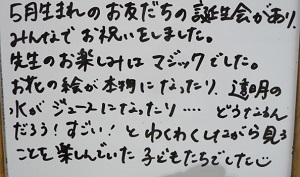 5月生まれのお友だちの誕生会があり、
みんなでお祝いをしました。
先生のお楽しみは マジックでした。
お花の絵が本物になったり、透明の
水がジュースになったり…… どうなるん
だろう!すごい!と わくわくしながら見る
ことを楽しんでいた 子どもたちでした